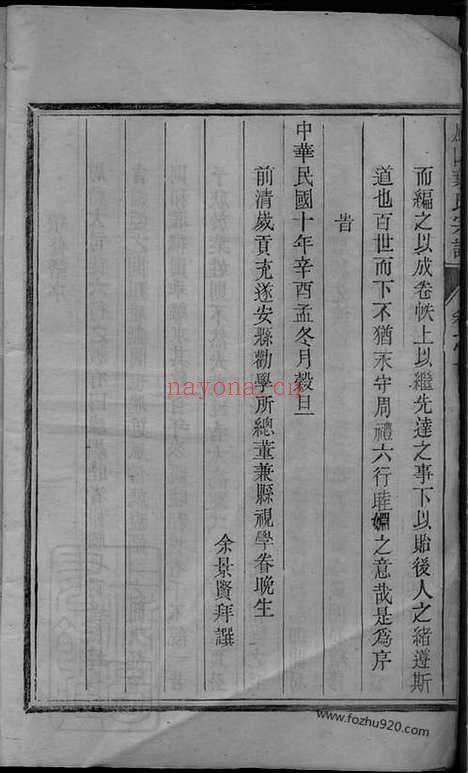 而編之以成卷帙上以繼先達之事下以貽後人之緒遵斯
道也百世而下不猶永守周禮六行睦婣之意哉是爲序
旹
中華民國十年辛酉孟冬月穀旦
前清歲貢充遂安縣勸學所總董兼縣視學眷晚生
余景賢拜譔
nayona.cn
www.fozhu920.com